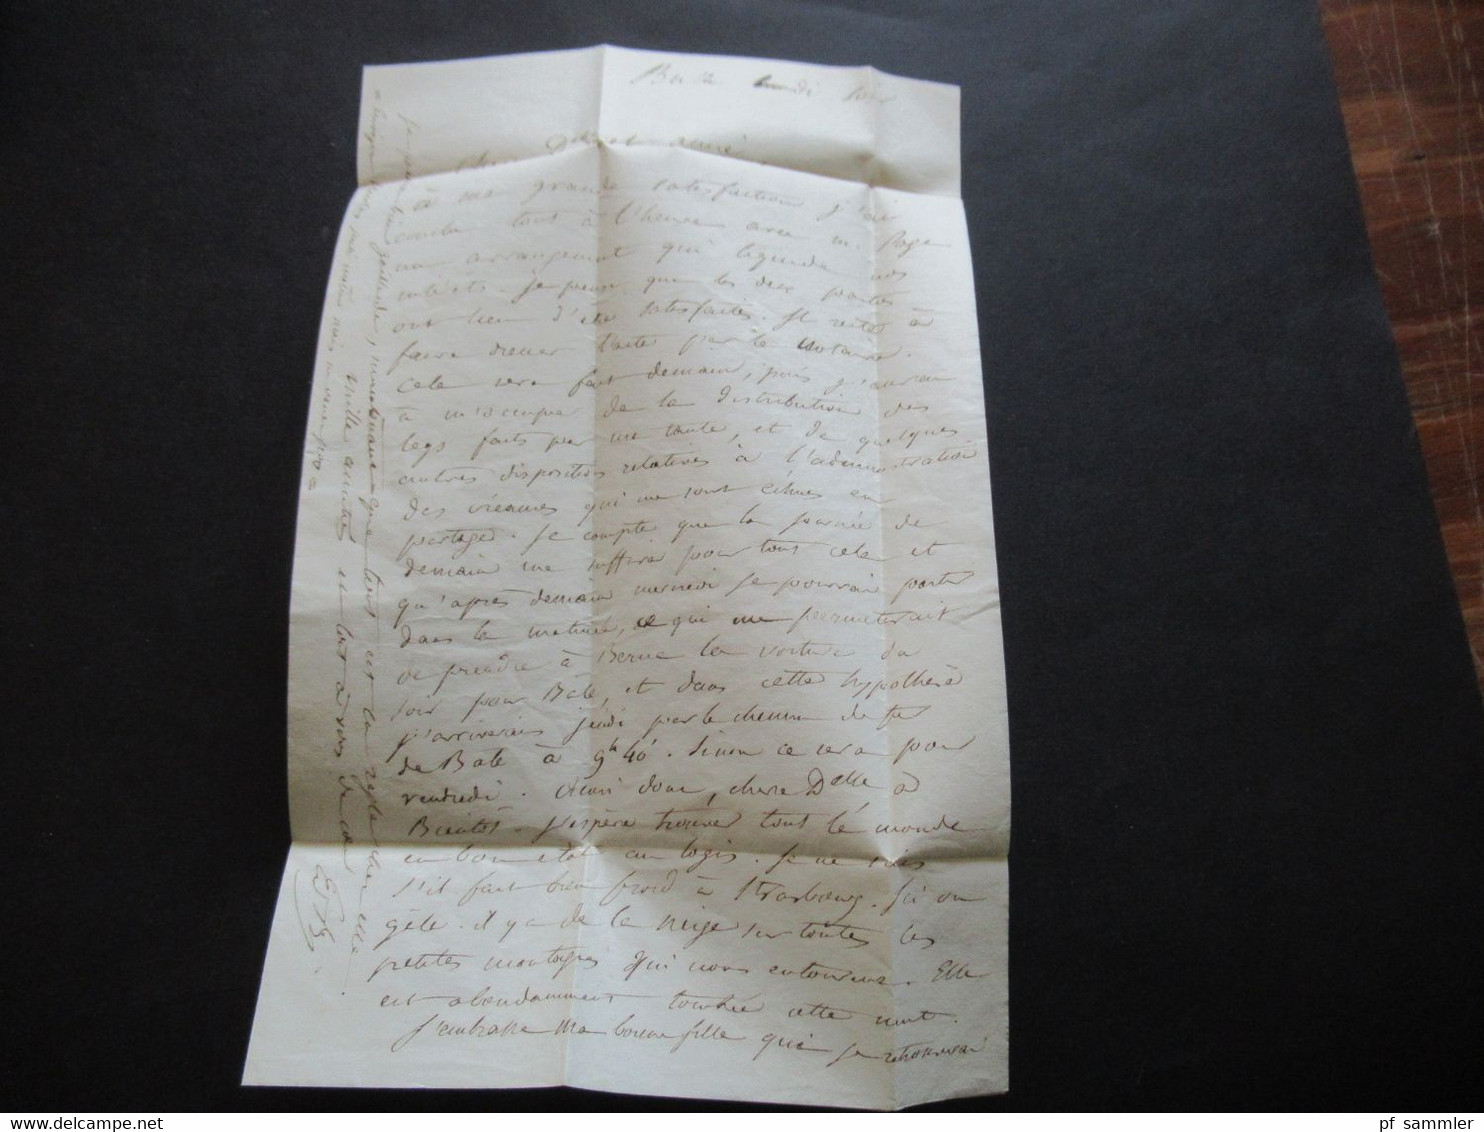 lundi soir
Chère Delle et amie
à ma grande satisfaction j'ai
conclu tout à l'heure avec m. Page
un arrangement qui liquide nos
intérêts. Je pense que les deux parties
ont lieu d'être satisfaites. Il reste à
faire dresser l'acte par le notaire.
Cela sera fait demain, puis j'aurai
à m'occuper de la distribution des
legs faits par ma tante, et de quelques
autres dispositions relatives à l'administration
des créances qui me sont échues en
partage. Je compte que la journée de
demain me suffira pour tout cela et
qu'après demain mercredi je pourrai partir
dans la matinée, ce qui me permetterait
de prendre à Berne la voiture du
soir pour Bâle, et dans cette hypothèse
j'arriverais jeudi par le chemin de fer
de Bâle à 9h 40'. Sinon ce sera pour
vendredi. Ainsi donc, chère Delle à
Bientôt. J'espère trouver tout le monde
en bon état au logis. Je ne sais
s'il fait bien froid à Strasbourg. Ici on
gèle. il y a de la neige sur toutes les
petites montagnes qui nous entourent. Elle
est abondamment tombée cette nuit.
J'embrasse ma bonne fille que je retrouverai
je pense bien gaillarde, maintenant que tout est en règle chez elle.
mille amitiés et tout à vous de cœur
pf_sammler